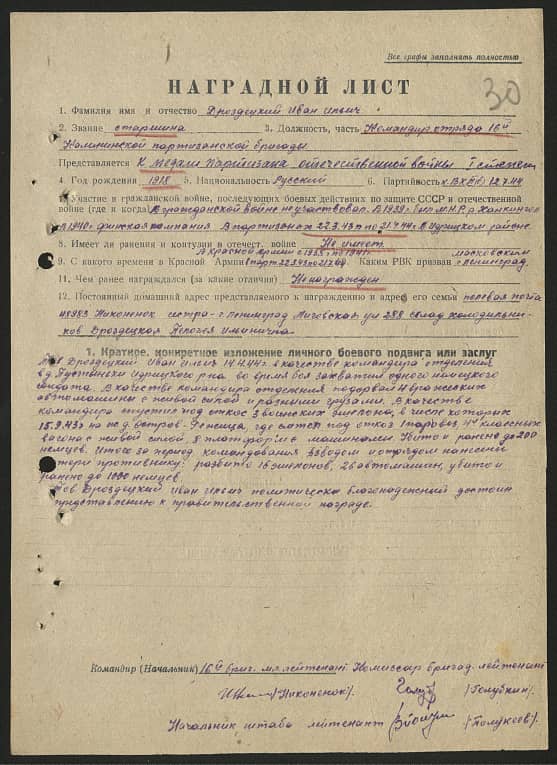 Все графы заполнять полностью
30
НАГРАДНОЙ ЛИСТ
1. Фамилия имя и отчество Дроздецкий Иван Ильич
2. Звание старшина 3. Должность, часть Командир отряда 16й
Калининской партизанской бригады
Представляется К медали партизана отечественной войны I степени
4. Год рождения 1918 5. Национальность Русский 6. Партийность к. ВКП(б) 12.7.44
7. Участие в гражданской войне, последующих боевых действиях по защите СССР и отечественной
войне (где и когда) В гражданской войне не участвовал. В 1939г был М.Н.Р. р. Ханкингол
в 1940г финская компания В партизанах 22.3.43 по 21.7.44г в Идрицком районе
8. Имеет ли ранения и контузии в отечест. войне Не имеет
9. С какого времени в Красной Армии В Красной армии с 1938г по 1941г в парт. Каким РВК призван Московским г Ленинград
11. Чем ранее награждался (за какие отличия) Не награжден
12. Постоянный домашний адрес представляемого к награждению и адрес его семьи полевая почта
Никоненок сестра г Ленинград Лиговская ул 288 склад холодильни-
ков Дроздецкая
1. Краткое, конкретное изложение личного боевого подвига или заслуг
Тов Дроздецкий Иван Ильич 14.4.44г в качестве командира отделения
в д. Идрицкого р-на во время боя захватил одного немецкого
солдата. В качестве командира отделения подорвал 4 вражеских
автомашины с живой силой и разными грузами. В качестве
командира пустил под откос 3 воинских эшелона, в числе которых
15.9.43г на ж.д. где слетел под откос 1 паровоз, классных
вагона с живой силой, 8 платформ с машинами. Убито и ранено до 200
немцев. Итого за период командования взводом и отрядом нанесены
потери противнику: разбито 16 эшелонов, 26 автомашин, убито и
ранено до 1000 немцев.
Тов Дроздецкий Иван Ильич политически благонадежный достоин
представлению к правительственной награде.
Командир (Начальник) 16й бриг. мл. лейтенант Комиссар бригад. лейтенант
(Никоненок). (Голубкин)
Начальник штаба лейтенант